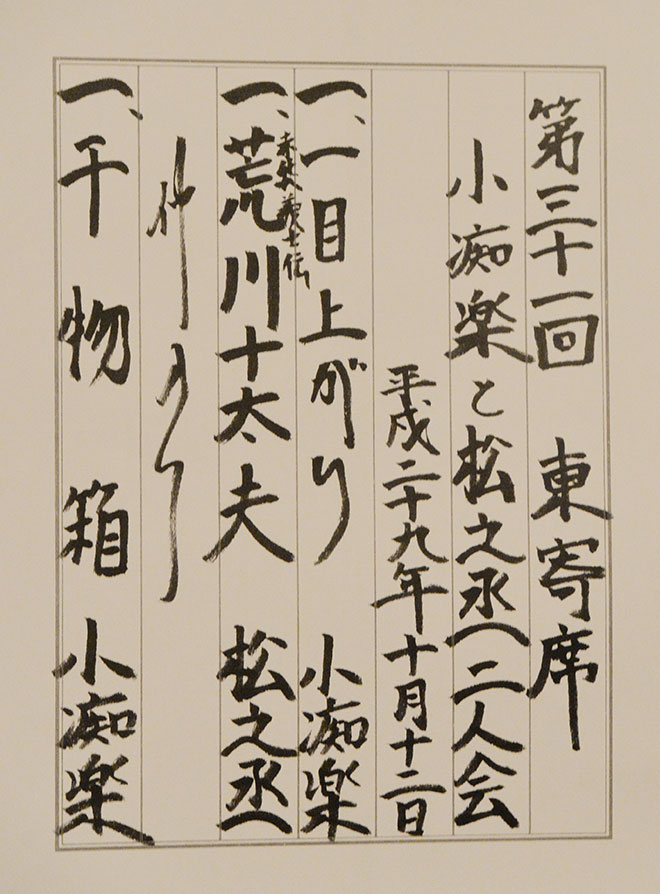 第三十一回 東寄席
小痴楽と松之丞 二人会
平成二十九年十月十二日
一、一目上がり 小痴楽
赤穂義士伝
一、荒川十太夫 松之丞
仲入り
一、干物箱 小痴楽